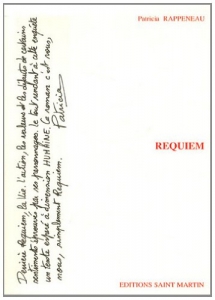 Patricia RAPPENEAU
REQUIEM
EDITIONS SAINT MARTIN
Derrière Requiem, la vie. l'action, les valeurs et les défauts de certains
sentiments éprouvés par ses personnages. le tout rendant à cette enquête
un texte exposé à dimension HUMAINE. Ce roman c'est nous,
nous, simplement Requiem.
Patricia